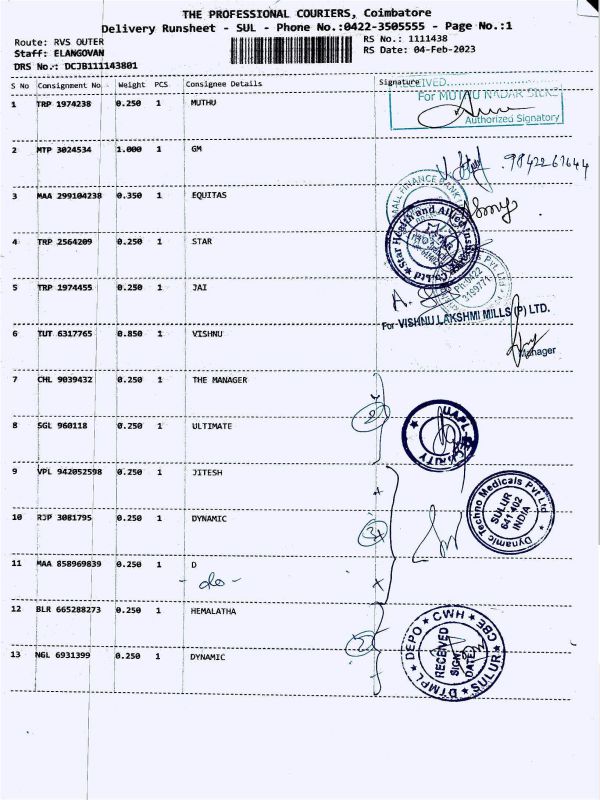 THE PROFESSIONAL COURIERS, Coimbatore
Delivery Runsheet - SUL - Phone No.:0422-3505555 - Page No.:1
Route: RVS OUTER
RS No.: 1111438
Staff: ELANGOVAN
RS Date: 04-Feb-2023
DRS No.: DCJB111143801
S No Consignment No Weight PCS Consignee Details Signature
RECEIVED
For MUTHU NADAR SILKS
1 TRP 1974238 0.250 1 MUTHU
Authorized Signatory
2 MTP 3024534 1.000 1 GM
9842261644
3 MAA 299104238 0.350 1 EQUITAS
SMALL FINANCE BANK
4 TRP 2564209 0.250 1 STAR
Star Health and Allied Insurance Co. Ltd
5 TRP 1974455 0.250 1 JAI
PH:0422
3169771
Pvt Ltd
A.
For VISHNU LAKSHMI MILLS (P) LTD.
6 TUT 6317765 0.850 1 VISHNU
Manager
7 CHL 9039432 0.250 1 THE MANAGER
8 SGL 960118 0.250 1 ULTIMATE
2
UAPL
SECURITY
9 VPL 942052598 0.250 1 JITESH
Dynamic Techno Medicals Pvt Ltd
SULUR
641 402
INDIA
10 RJP 3081795 0.250 1 DYNAMIC
11 MAA 858969839 0.250 1 D
- do -
12 BLR 665288273 0.250 1 HEMALATHA
2
DTMPL DEPO CWH CBE SULUR
RECEIVED
SIGN
DATE
13 NGL 6931399 0.250 1 DYNAMIC